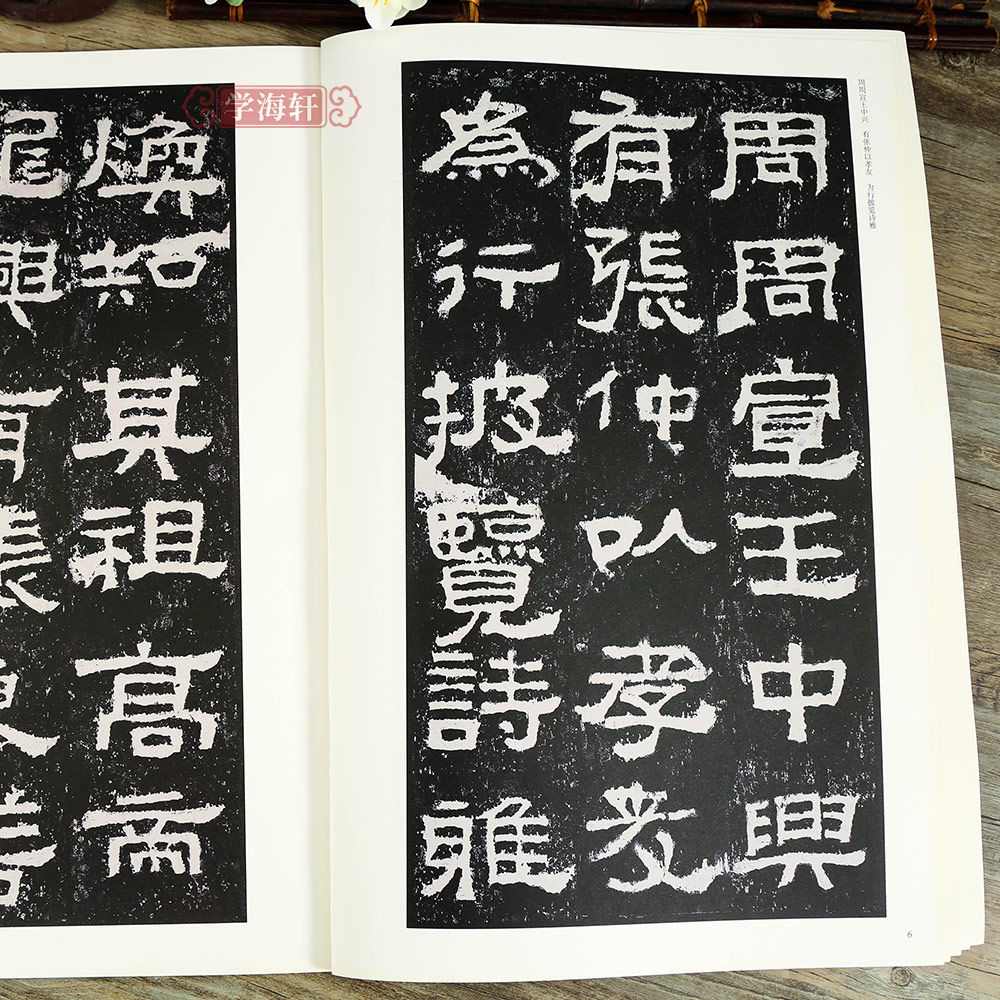 周周宣王中興
有張仲以孝友
為行披覽詩雅
周周宣王中兴 有张仲以孝友 为行披览诗雅
6
学海轩
煥知其祖高帝
興有張良善